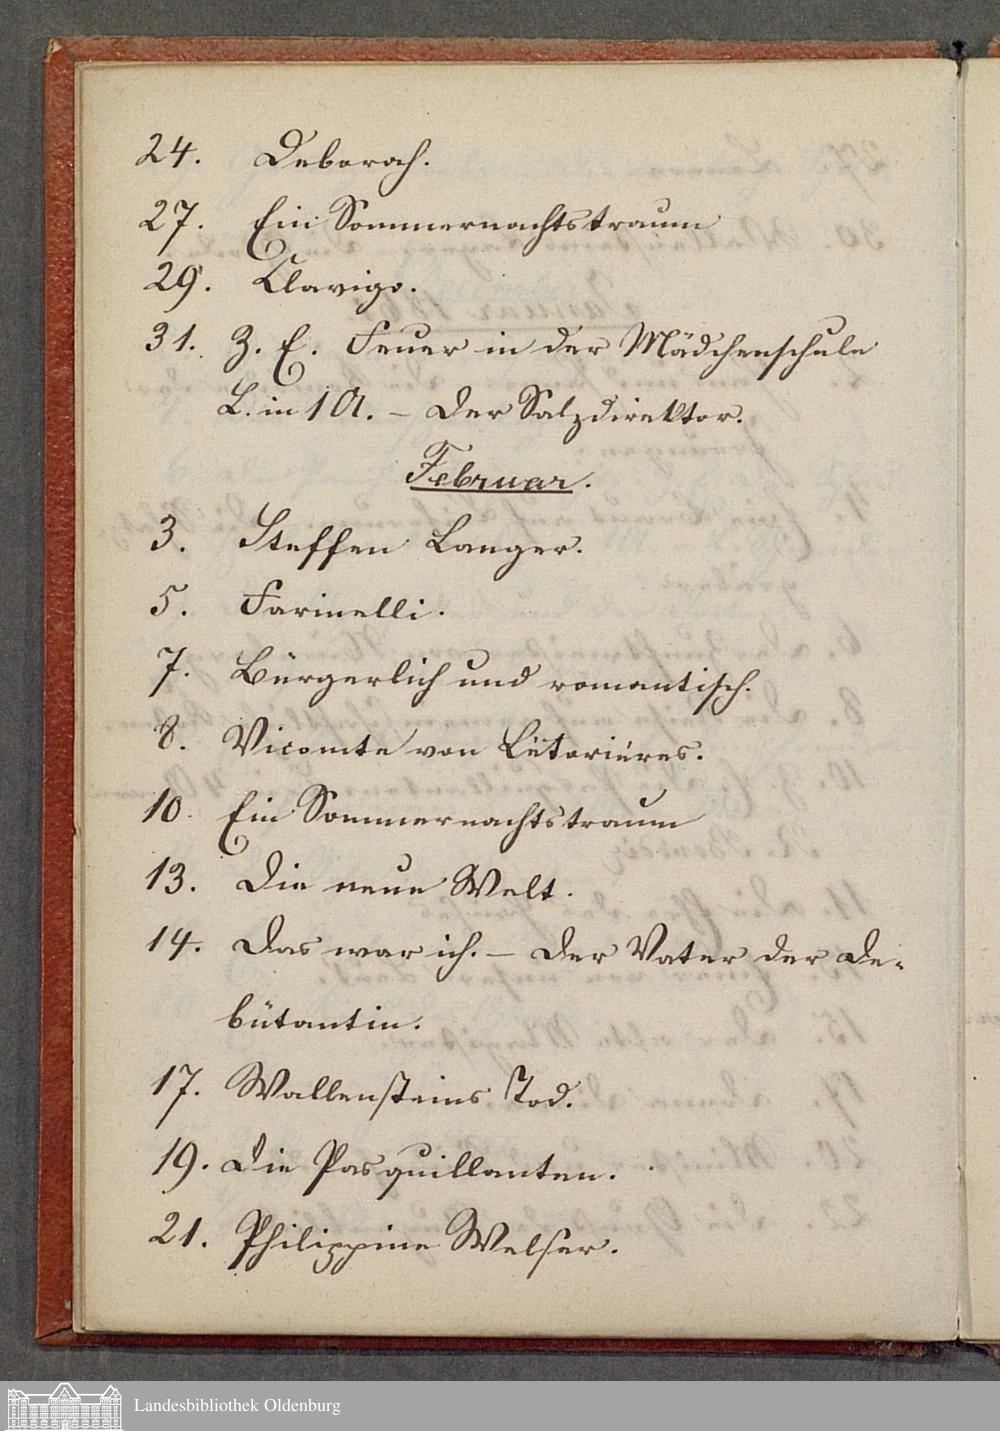 24. Deborah.
27. Ein Sommernachtstraum
29. Clavigo.
31. Z. E. Feuer in der Mädchenschule
L. in 1 A. – Der Salzdirektor.
Februar.
3. Steffen Langer.
5. Farinelli.
7. Bürgerlich und romantisch.
8. Vicomte von Létoriéres.
10. Ein Sommernachtstraum
13. Die neue Welt.
14. Das war ich. – Der Vater der De-
bütantin.
17. Wallensteins Tod.
19. Die Pasquillanten.
21. Philippine Welser.
Landesbibliothek Oldenburg